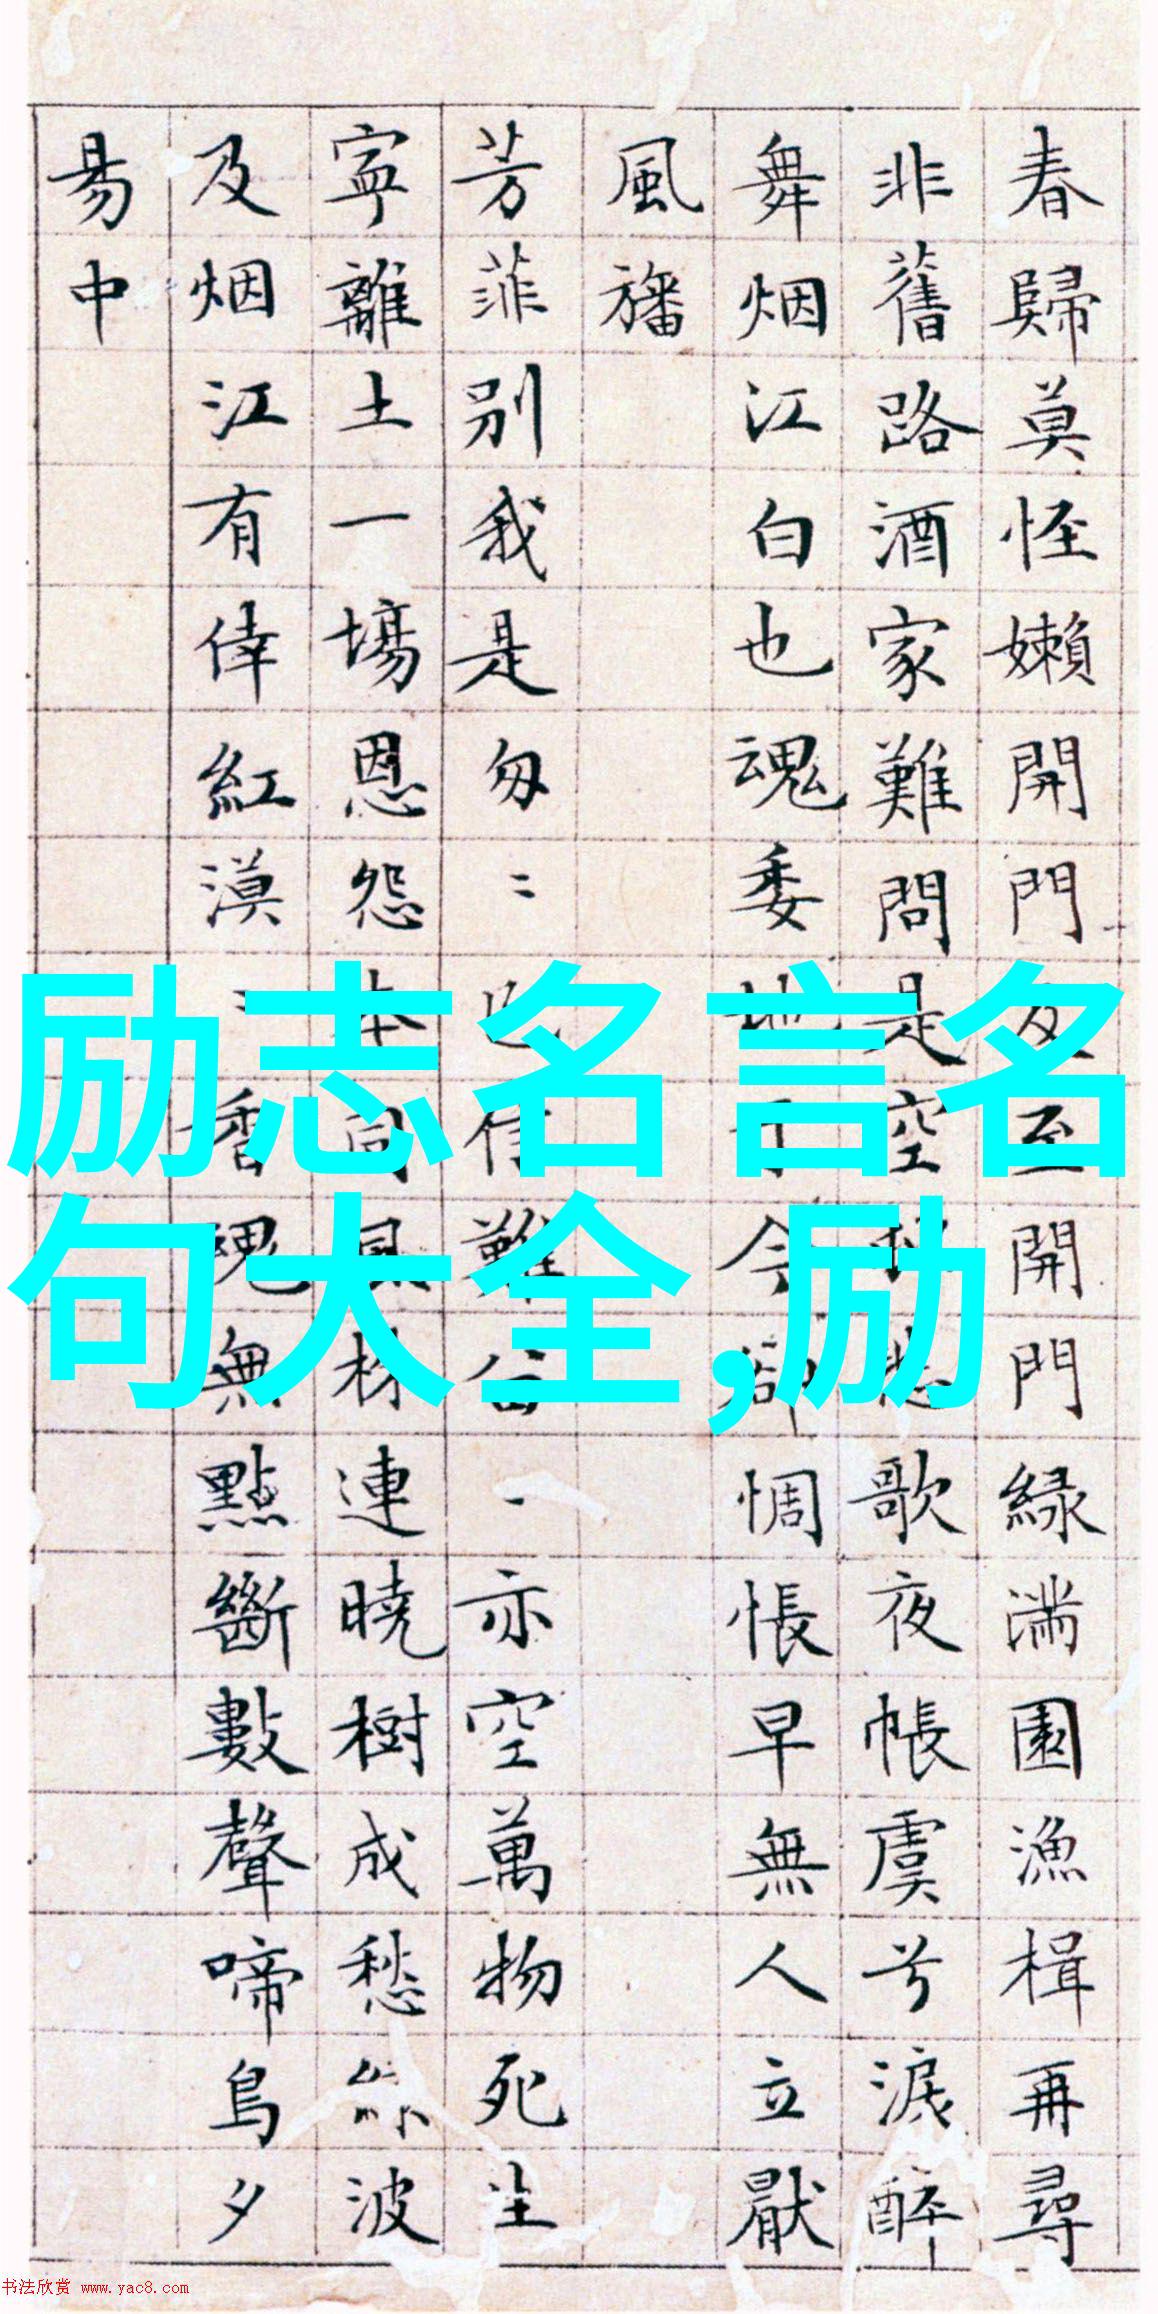 春歸莫怪嬾開門及至開門緑滿園漁楫再尋
非舊路酒家難問是空村悲歌夜帳虞兮淚醉
舞烟江白也魂委地于今卻惆悵早無人立厭
風旛
芳菲别我是匆〻已信難留一亦空萬物死生
寧離土一場恩怨本同風株連曉樹成愁綠波
及烟江有倖紅漠〻香魂無點斷數聲啼鳥夕
易中
励志名言名
句大全,励
书法欣赏 www.yac8.com